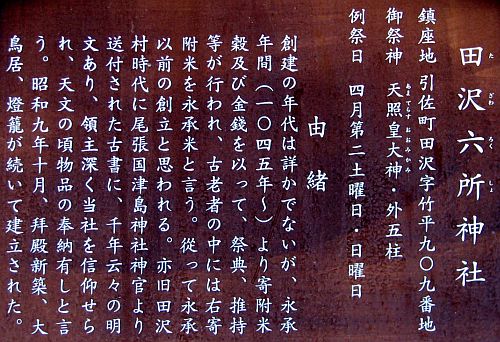 田沢六所神社
た ざわ ろくしょ
鎮座地 引佐町田沢字竹平九〇九番地
御祭神 天照皇大神・外五柱
あま てらす おお おみ かみ
例祭日 四月第二土曜日・日曜日
由緒
創建の年代は詳かでないが、永承
年間(一〇四五年〜)より寄附米
穀及び金錢を以って、祭典、維持
等が行われ、古老者の中には右寄
附米を永承米と言う。從って永承
以前の創立と思われる。亦旧田沢
村時代に尾張国津島神社神官より
送付された古書に、千年云々の明
文あり、領主深く当社を信仰せら
れ、天文の頃物品の奉納有しと言
う。昭和九年十月、拜殿新築、大
鳥居、燈籠が続いて建立された。